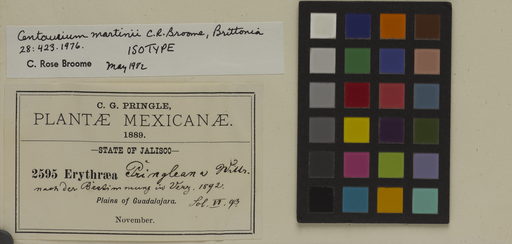 Centaurium martinii C.R. Broome, Brittonia
28:423.1976.
ISOTYPE
C. Rose Broome May 1982
C. G. PRINGLE,
PLANTÆ MEXICANÆ.
1889.
—STATE OF JALISCO—
2595 Erythræa Pringleana Wittr.
nach der Bestimmung in Verz. 1892.
Plains of Guadalajara.
November.